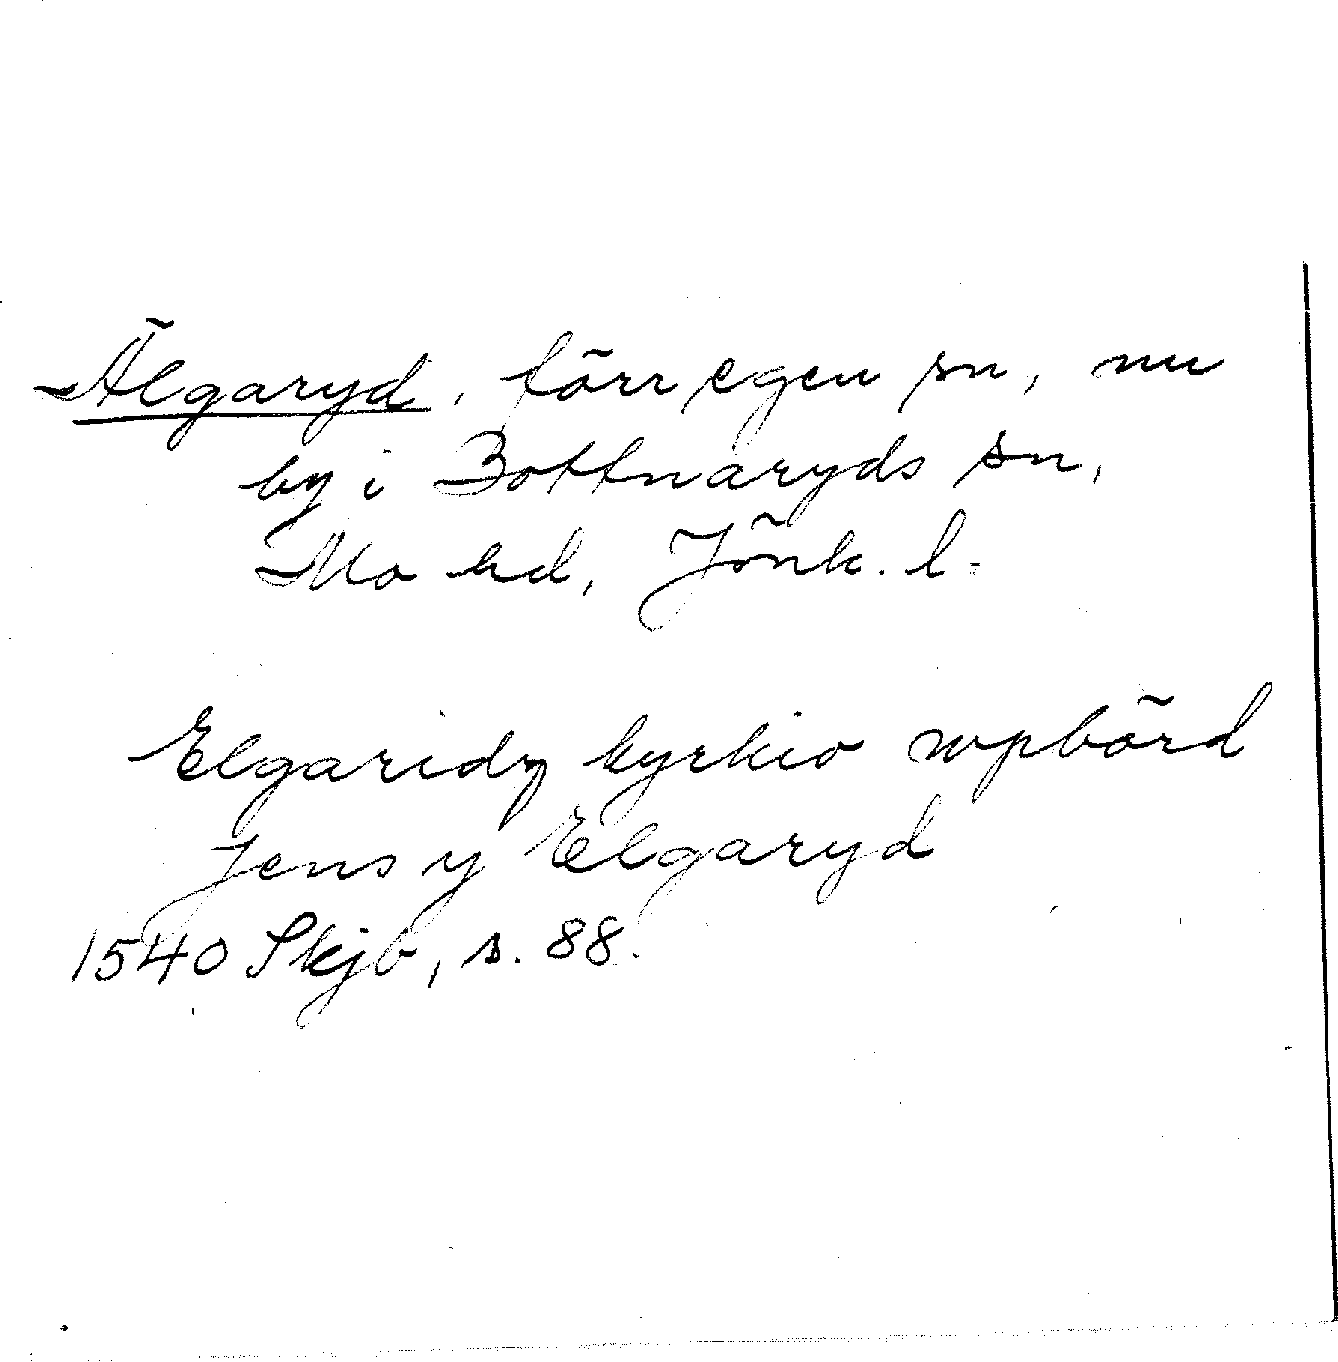 Älgaryd, förr egen sn, nu
by i Bottnaryds sn,
Mo hd, Jönk. l.
Elgaridz kyrkio wpbörd
Jens y Elgaryd
1540 Skjb, s. 88.